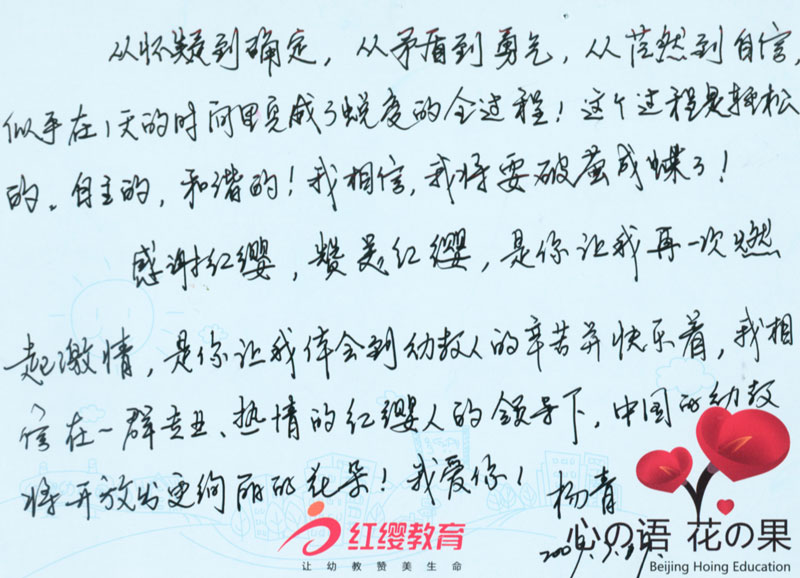 从怀疑到确定，从矛盾到勇气，从茫然到自信，
似乎在1天的时间里完成了蜕变的全过程！这个过程是轻松
的。自主的，和谐的！我相信，我将要破茧成蝶了！
感谢红缨，赞美红缨，是你让我再一次燃
起激情，是你让我体会到幼教人的辛苦并快乐着，我相
信在一群专业、热情的红缨人的领导下，中国的幼教
将开放出更绚丽的花朵！我爱你！杨青
红缨教育
让幼教赞美生命
心の语 花の果
Beijing Hoing Education